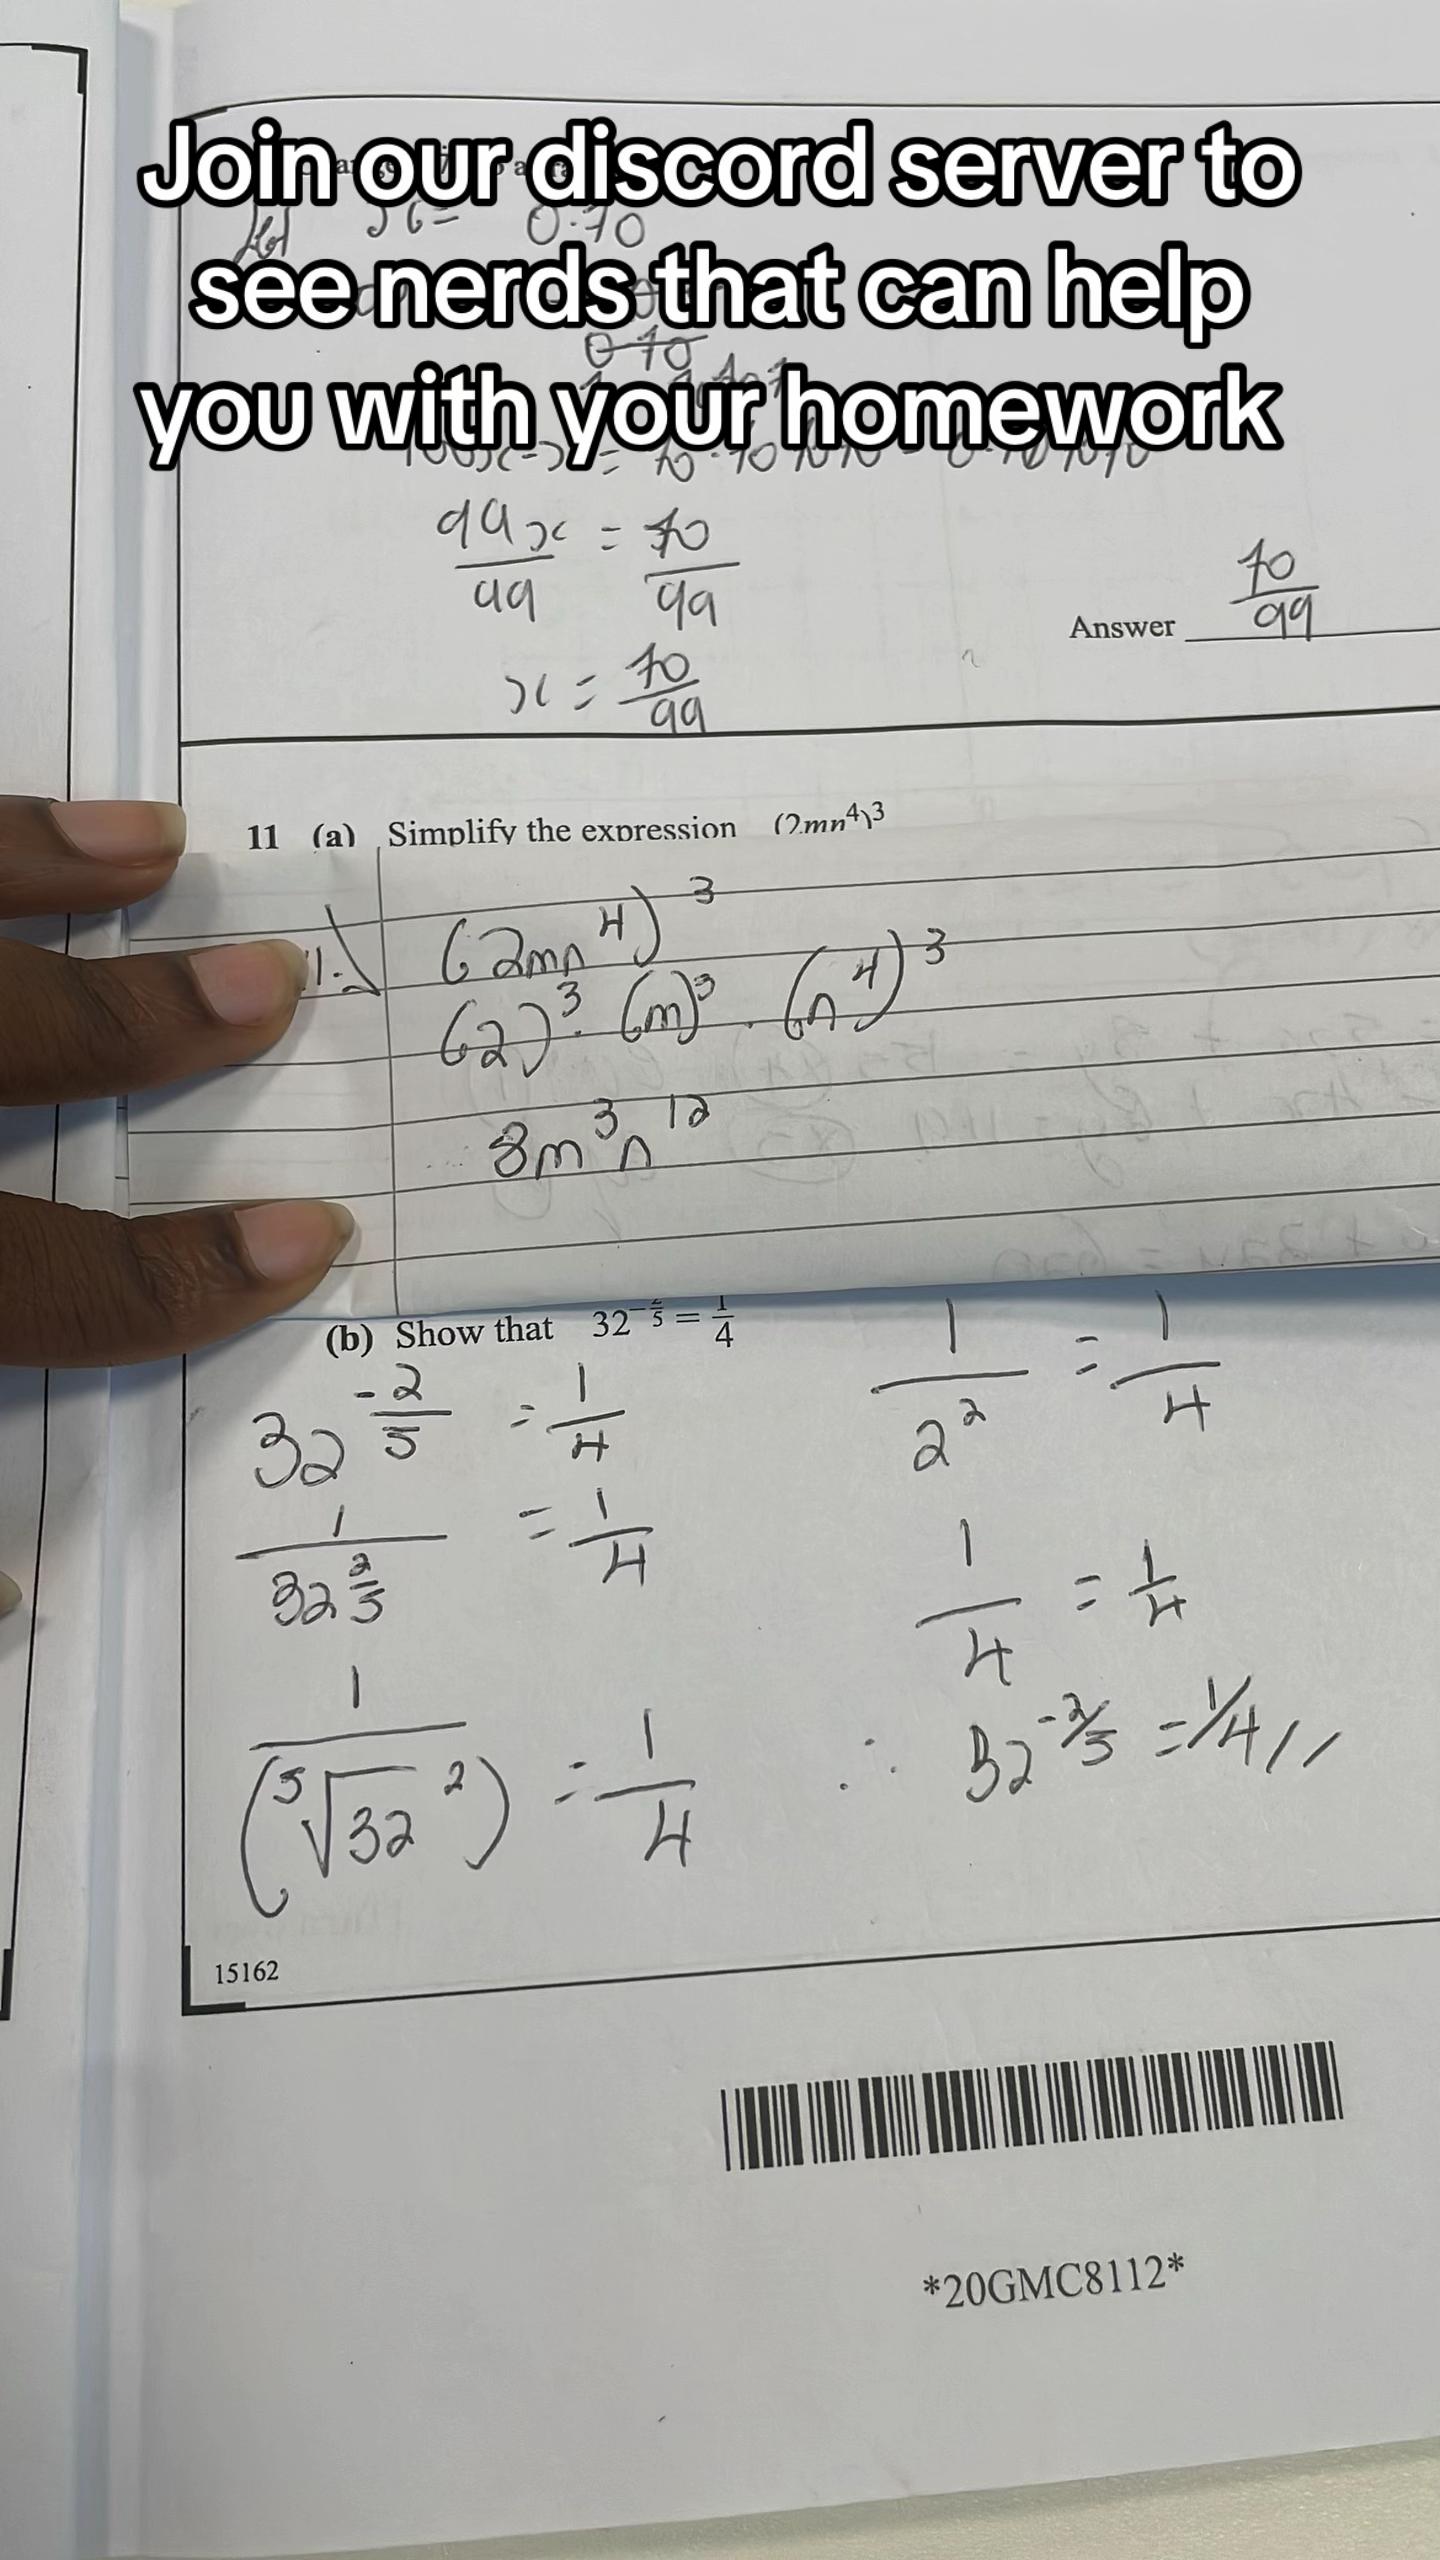 Join our discord server to
see nerds that can help
you with your homework
x = 0.70
0 70
100x-x = 70.707070 - 0.707070
99x = 70
99 99
x = 70
99
Answer 70
99
11 (a) Simplify the expression (2mn⁴)³
11. (2mn⁴)³
(2)³ · (m)³ · (n⁴)³
8m³n¹²
(b) Show that 32^-2/5 = 1/4
32^-2/5 = 1/4
1/32^2/5 = 1/4
1/(⁵√32 ²) = 1/4
1/2² = 1/4
1/4 = 1/4
∴ 32^-2/5 = 1/4 //
15162
*20GMC8112*